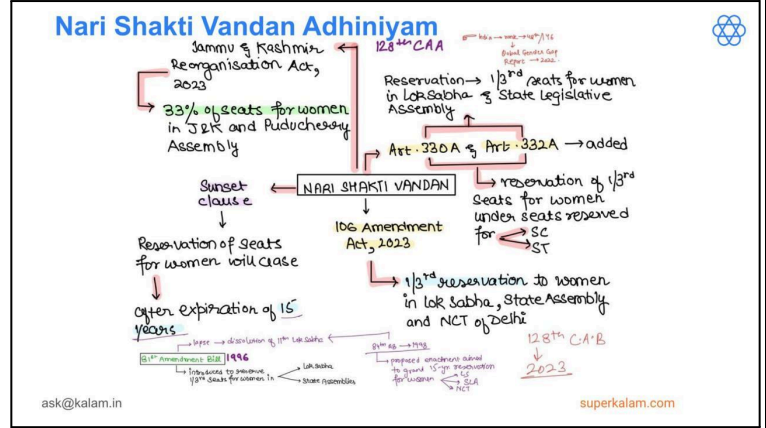 Nari Shakti Vandan Adhiniyam
128th CAA
India → rank → 48th/146
Global Gender Gap
Report → 2022
Jammu & Kashmir
Reorganisation Act,
2023
33% of seats for women
in J&K and Puducherry
Assembly
Reservation → 1/3rd seats for women
in Lok Sabha & State Legislative
Assembly
Art. 330A & Art. 332A → added
reservation of 1/3rd
seats for women
under seats reserved
for
SC
ST
NARI SHAKTI VANDAN
Sunset
clause
Reservation of seats
for women will cease
after expiration of 15
years
106 Amendment
Act, 2023
1/3rd reservation to women
in lok Sabha, State Assembly
and NCT of Delhi
lapse → dissolution of 11th Lok Sabha
81st Amendment Bill 1996
introduced to reserve
1/3rd seats for women in
Lok Sabha
State Assemblies
→ 1998
proposed enactment aimed
to grant 15-yr reservation
for women
LS
SLA
NCT
128th C.A.B
↓
2023
ask@kalam.in
superkalam.com